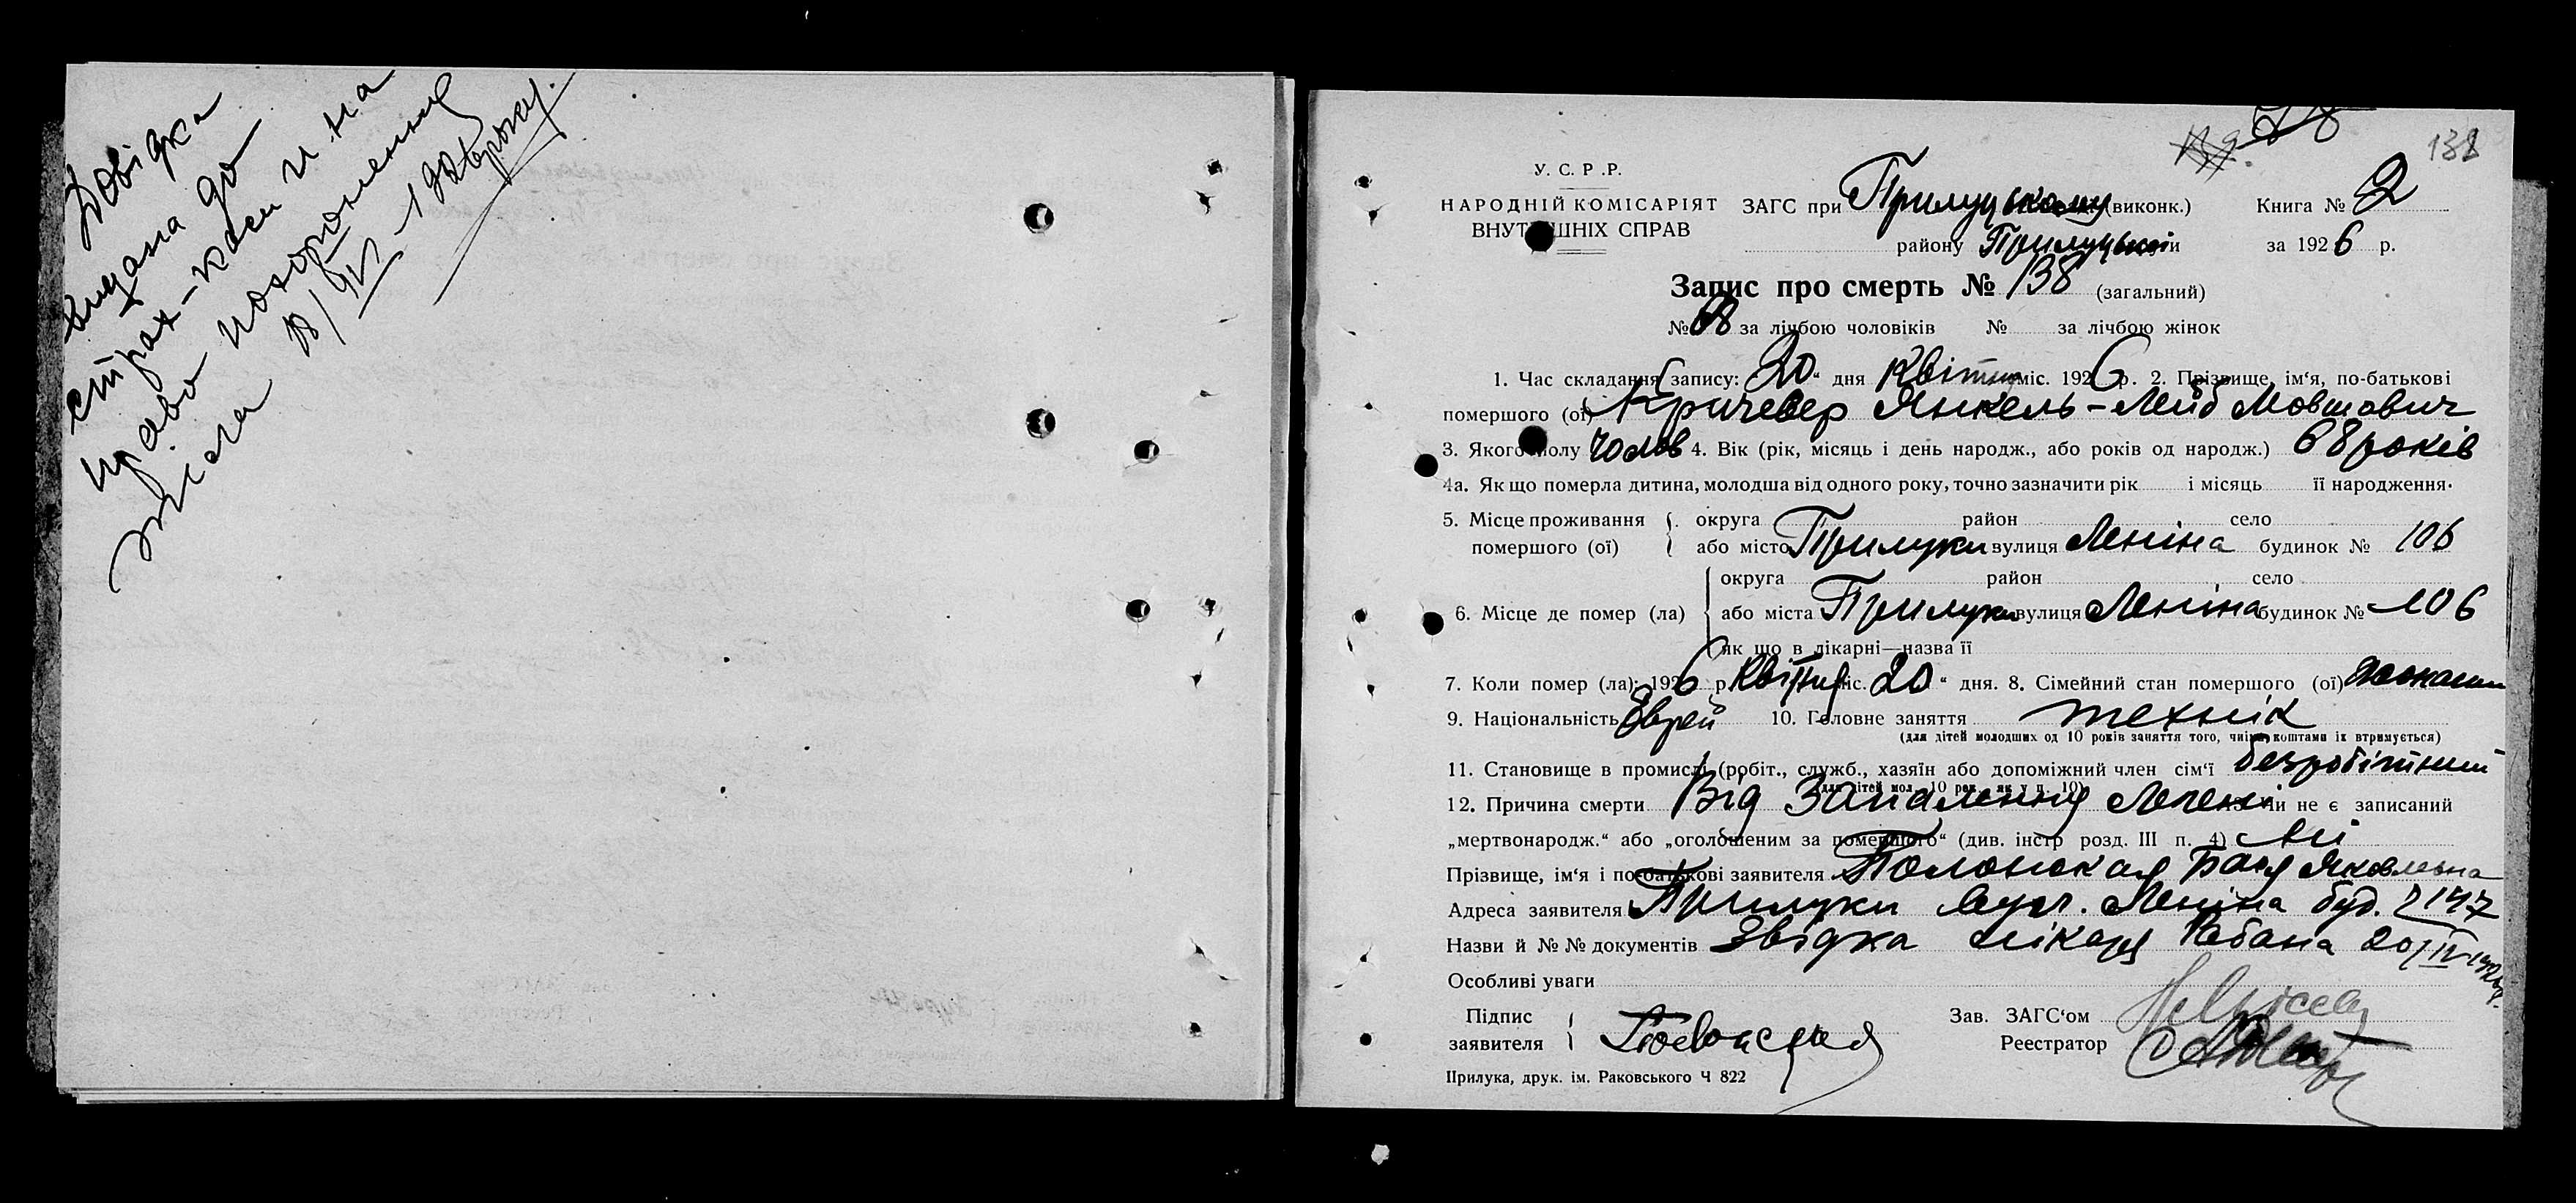 Довідка
видана до
страх-каси и на
право похоронення
тіла
У. С. Р. Р.
НАРОДНІЙ КОМІСАРІЯТ
ВНУТРІШНІХ СПРАВ
138
ЗАГС при Прилуцькому (виконк.)
району Прилуцької
Книга № 2
за 1926 р.
Запис про смерть № 138 (загальний)
№ 68 за лічбою чоловіків № за лічбою жінок
1. Час складання запису: 20 “ дня Квітня міс. 1926 р. 2. Прізвище, ім‘я, по-батькові
помершого (ої) Кричевер Янкель-Лейб Мовшович
3. Якого полу Чолов 4. Вік (рік, місяць і день народж., або років од народж.) 68 років
4а. Як що померла дитина, молодша від одного року, точно зазначити рік і місяць її народження.
5. Місце проживання помершого (ої) { округа район село
або місто Прилуки вулиця Леніна будинок № 106
6. Місце де помер (ла) { округа район село
або міста Прилуки вулиця Леніна будинок № 106
як що в лікарні—назва її
7. Коли помер (ла): 1926 р. Квітня міс. 20 “ дня. 8. Сімейний стан помершого (ої) жонатий
9. Національність Єврей 10. Головне заняття технік
(для дітей молодших од 10 років заняття того, чиїми коштами їх втримується)
11. Становище в промислі (робіт., служб., хазяїн або допоміжний член сім‘ї безробітний
(для дітей мол. 10 рок. як у п. 10)
12. Причина смерти Від Запалення Легенів чи не є записаний
„мертвонародж.“ або „оголошеним за помершого“ (див. інстр розд. III п. 4) Ні
Прізвище, ім‘я і по-батькові заявителя Полонская Бася Яковлевна
Адреса заявителя Прилуки вул. Леніна буд. 147
Назви й №№ документів Звідка лікаря Рабана 20/IV-1926р.
Особливі уваги
Підпис заявителя
Зав. ЗАГС‘ом
Реестратор
Прилука, друк. ім. Раковського Ч 822